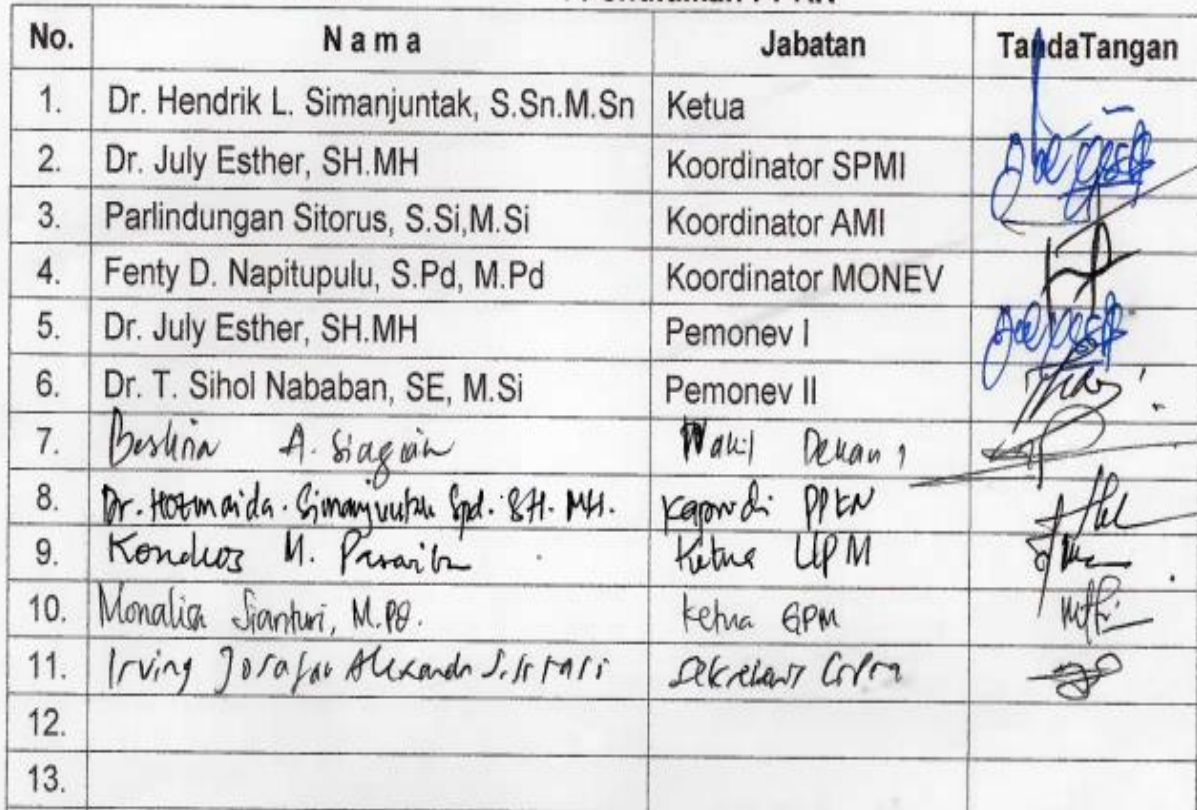 No. Nama Jabatan TandaTangan
1. Dr. Hendrik L. Simanjuntak, S.Sn.M.Sn Ketua
2. Dr. July Esther, SH.MH Koordinator SPMI
3. Parlindungan Sitorus, S.Si,M.Si Koordinator AMI
4. Fenty D. Napitupulu, S.Pd, M.Pd Koordinator MONEV
5. Dr. July Esther, SH.MH Pemonev I
6. Dr. T. Sihol Nababan, SE, M.Si Pemonev II
7. A. Siagian Wakil Dekan 1
8. Dr. Hotmaida. Simanjuntak Spd. SH. MH. Kaprodi PPKN
9. M. Ketua UPM
10. Monalisa Sianturi, M.Pd. Ketua GPM
11. Irving Josafat Alexander
12.
13.